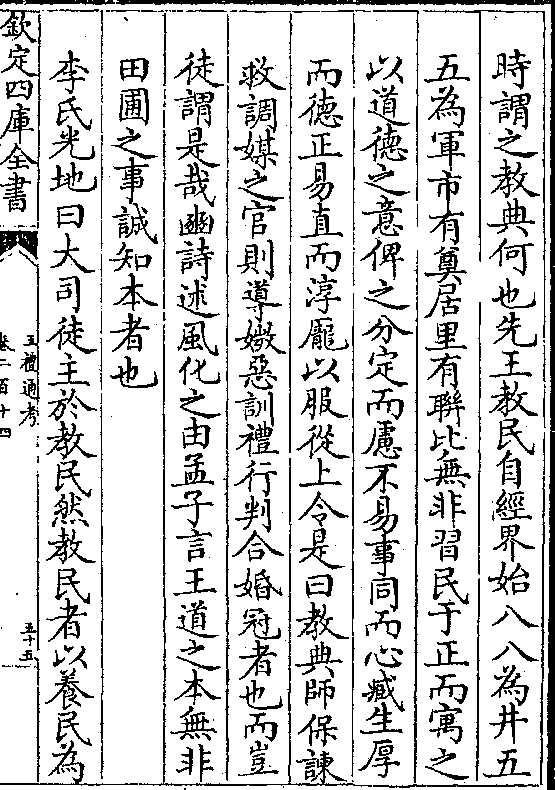 時謂之教典何也先王教民自經界始八八為井五
五為軍市有奠居里有聯比無非習民于正而寓之
以道德之意俾之分定而慮不易事同而心臧生厚
而德正易直而淳龐以服從上令是曰教典師保諫
救調媒之官則導媺惡訓禮行判合婚冠者也而豈
徒謂是哉豳詩述風化之由孟子言王道之本無非
田圃之事誠知本者也
李氏光地曰大司徒主於教民然教民者以養民為
欽定四庫全書
五禮通考
卷二百十四
五十五